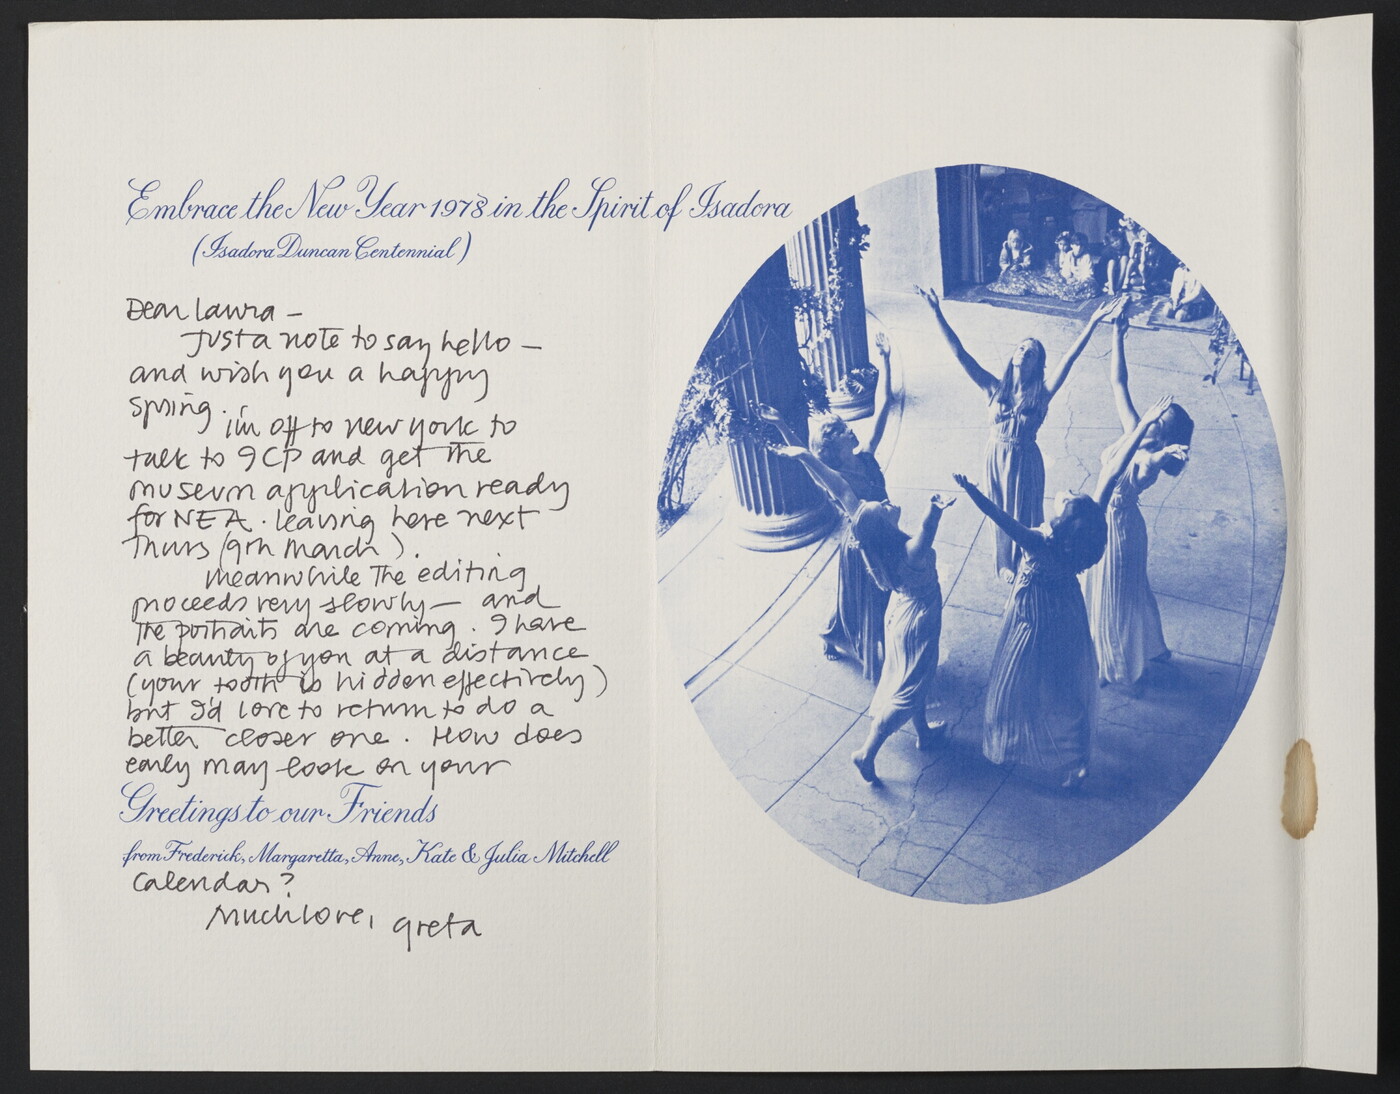 Embrace the New Year 1978 in the Spirit of Isadora
(Isadora Duncan Centennial)
Dear Laura –
Just a note to say hello –
and wish you a happy
spring. i'm off to new york to
talk to ICP and get the
museum application ready
for NEA. leaving here next
Thurs (9th March).
meanwhile The editing
proceeds very slowly – and
The portraits are coming. I have
a beauty of you at a distance
(your tooth is hidden effectively)
but I'd love to return to do a
better closer one. How does
early may look on your
Greetings to our Friends
from Frederick, Margaretta, Anne, Kate & Julia Mitchell
calendar?
Much love, greta